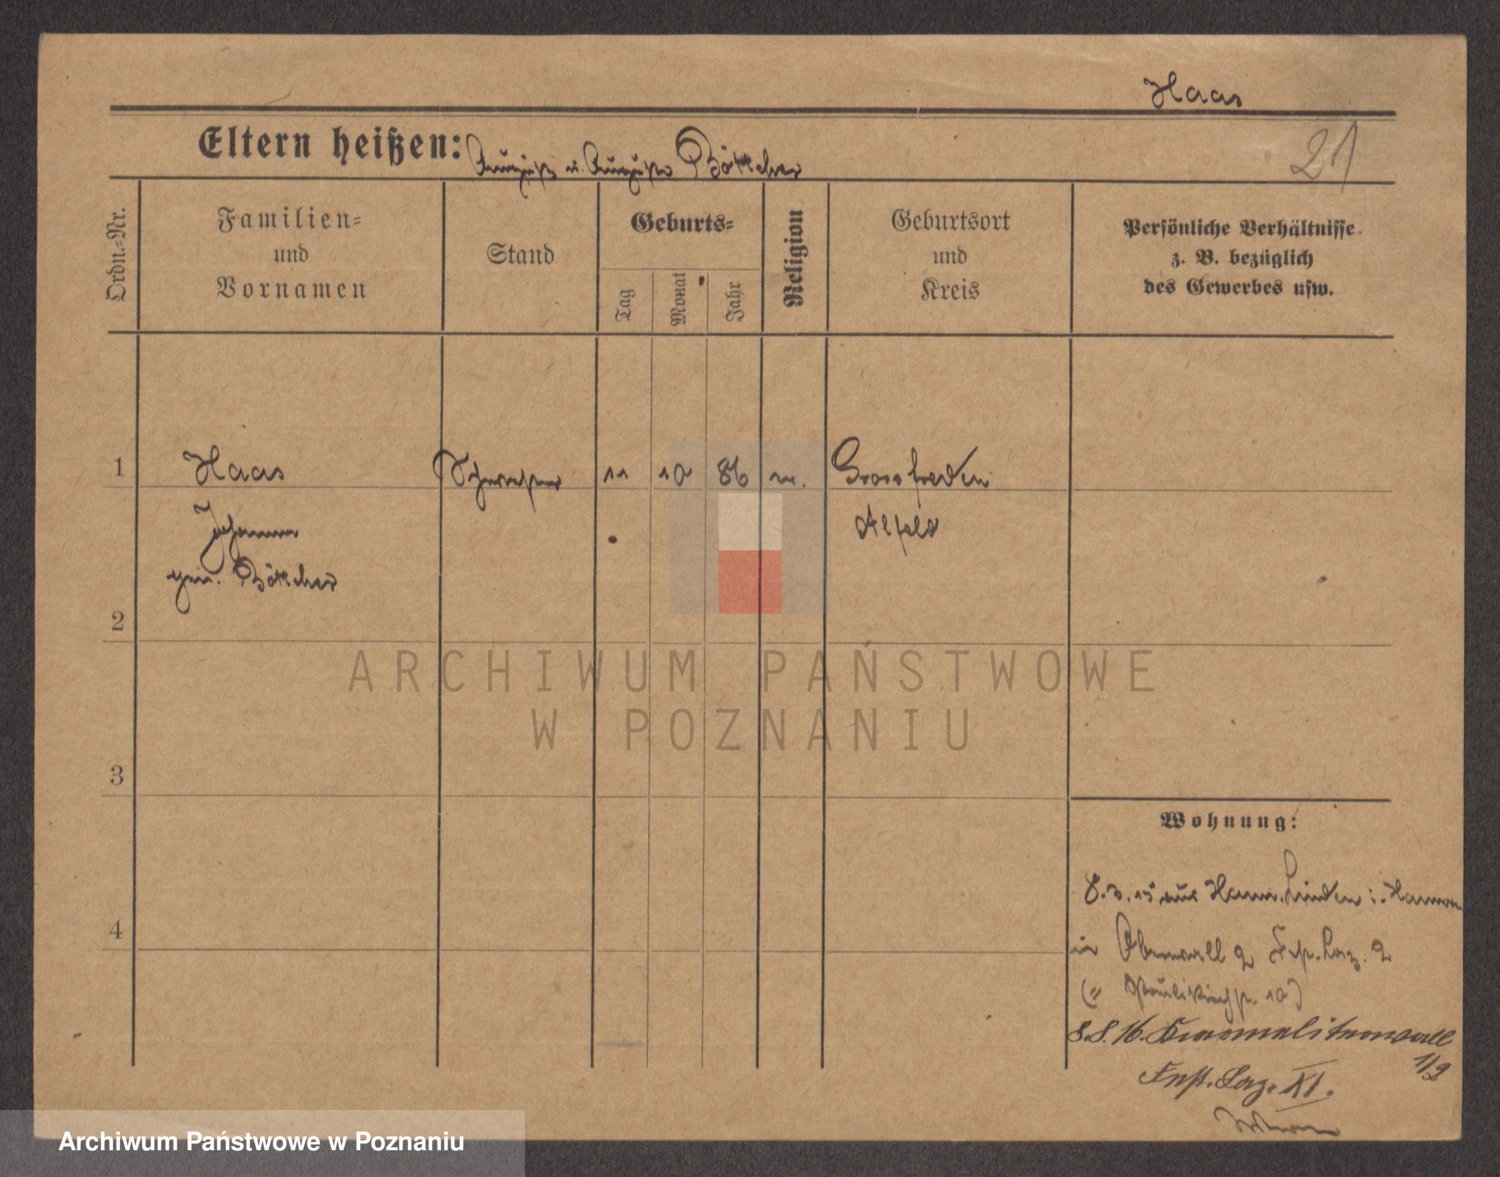 Haas
21
Eltern heißen: August u. Auguste Böttcher
Ordn.-Nr.
Familien- und Vornamen
Stand
Geburts-
Tag
Monat
Jahr
Religion
Geburtsort und Kreis
Persönliche Verhältnisse z. B. bezüglich des Gewerbes usw.
1
Haas
Schwester
11
10
86
Grossfreden
Johanna
Alfeld
geb. Böttcher
2
ARCHIWUM PAŃSTWOWE
W POZNANIU
3
Wohnung:
8.3.15 aus Hann. Linden i. Hannover
4
in Oberwall 2 Fest. Laz. 2
(" Paulikirchstr. 10)
8.8.16. Kramalitenwall
1/2
Fest. Laz. XI.
Archiwum Państwowe w Poznaniu